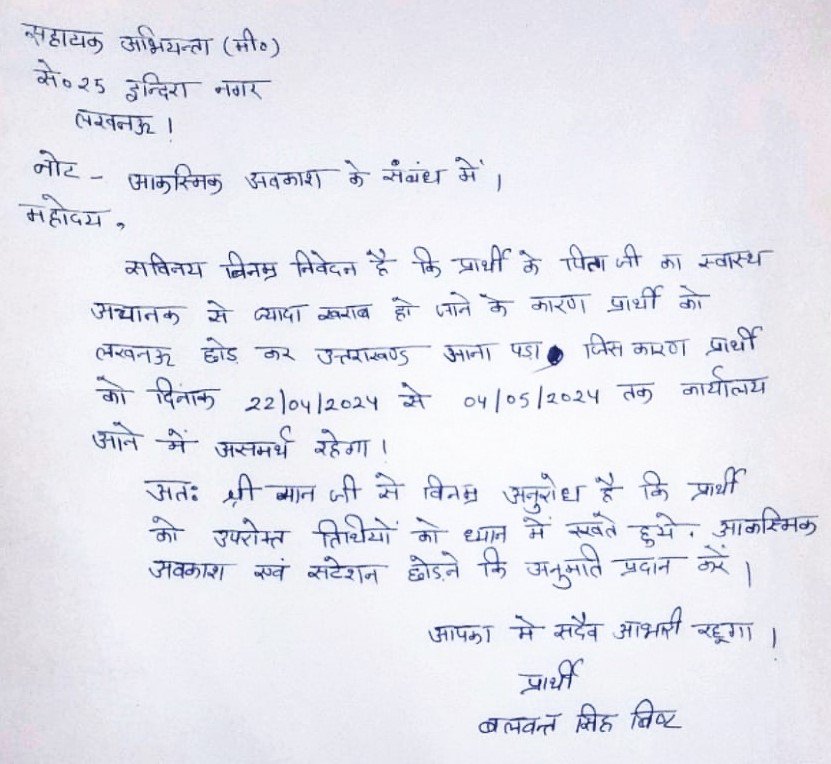 सहायक अभियन्ता (मी०)
से०25 इन्दिरा नगर
लखनऊ।
नोट - आकस्मिक अवकाश के संबंध में।
महोदय,
सविनय विनम्र निवेदन है कि प्रार्थी के पिता जी का स्वास्थ
अचानक से ज्यादा खराब हो जाने के कारण प्रार्थी को
लखनऊ छोड़ कर उत्तराखण्ड आना पड़ा। जिस कारण प्रार्थी
को दिनांक 22/04/2024 से 04/05/2024 तक कार्यालय
आने में असमर्थ रहेगा।
अतः श्री मान जी से विनम्र अनुरोध है कि प्रार्थी
को उपरोक्त तिथियों को ध्यान में रखते हुये, आकस्मिक
अवकाश एवं सटेशन छोड़ने कि अनुमति प्रदान करें।
आपका मे सदैव आभारी रहूगा।
प्रार्थी
बलवन्त सिह बिष्ट